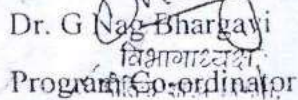 Dr. G Nag Bhargavi
विभागाध्यक्ष
Program Co-ordinator